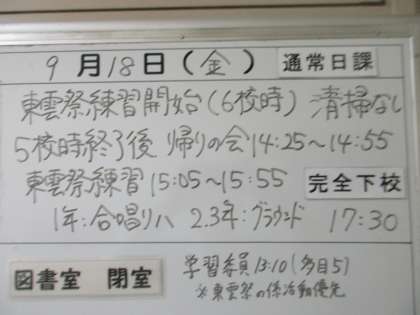 9月18日(金) 通常日課
東雲祭練習開始(6校時) 清掃なし
5校時終了後 帰りの会14:25〜14:55
東雲祭練習15:05〜15:55 完全下校
1年:合唱リハ 2.3年:グラウンド 17:30
図書室 閉室 学習委員13:10(多目5)
※東雲祭の係活動優先